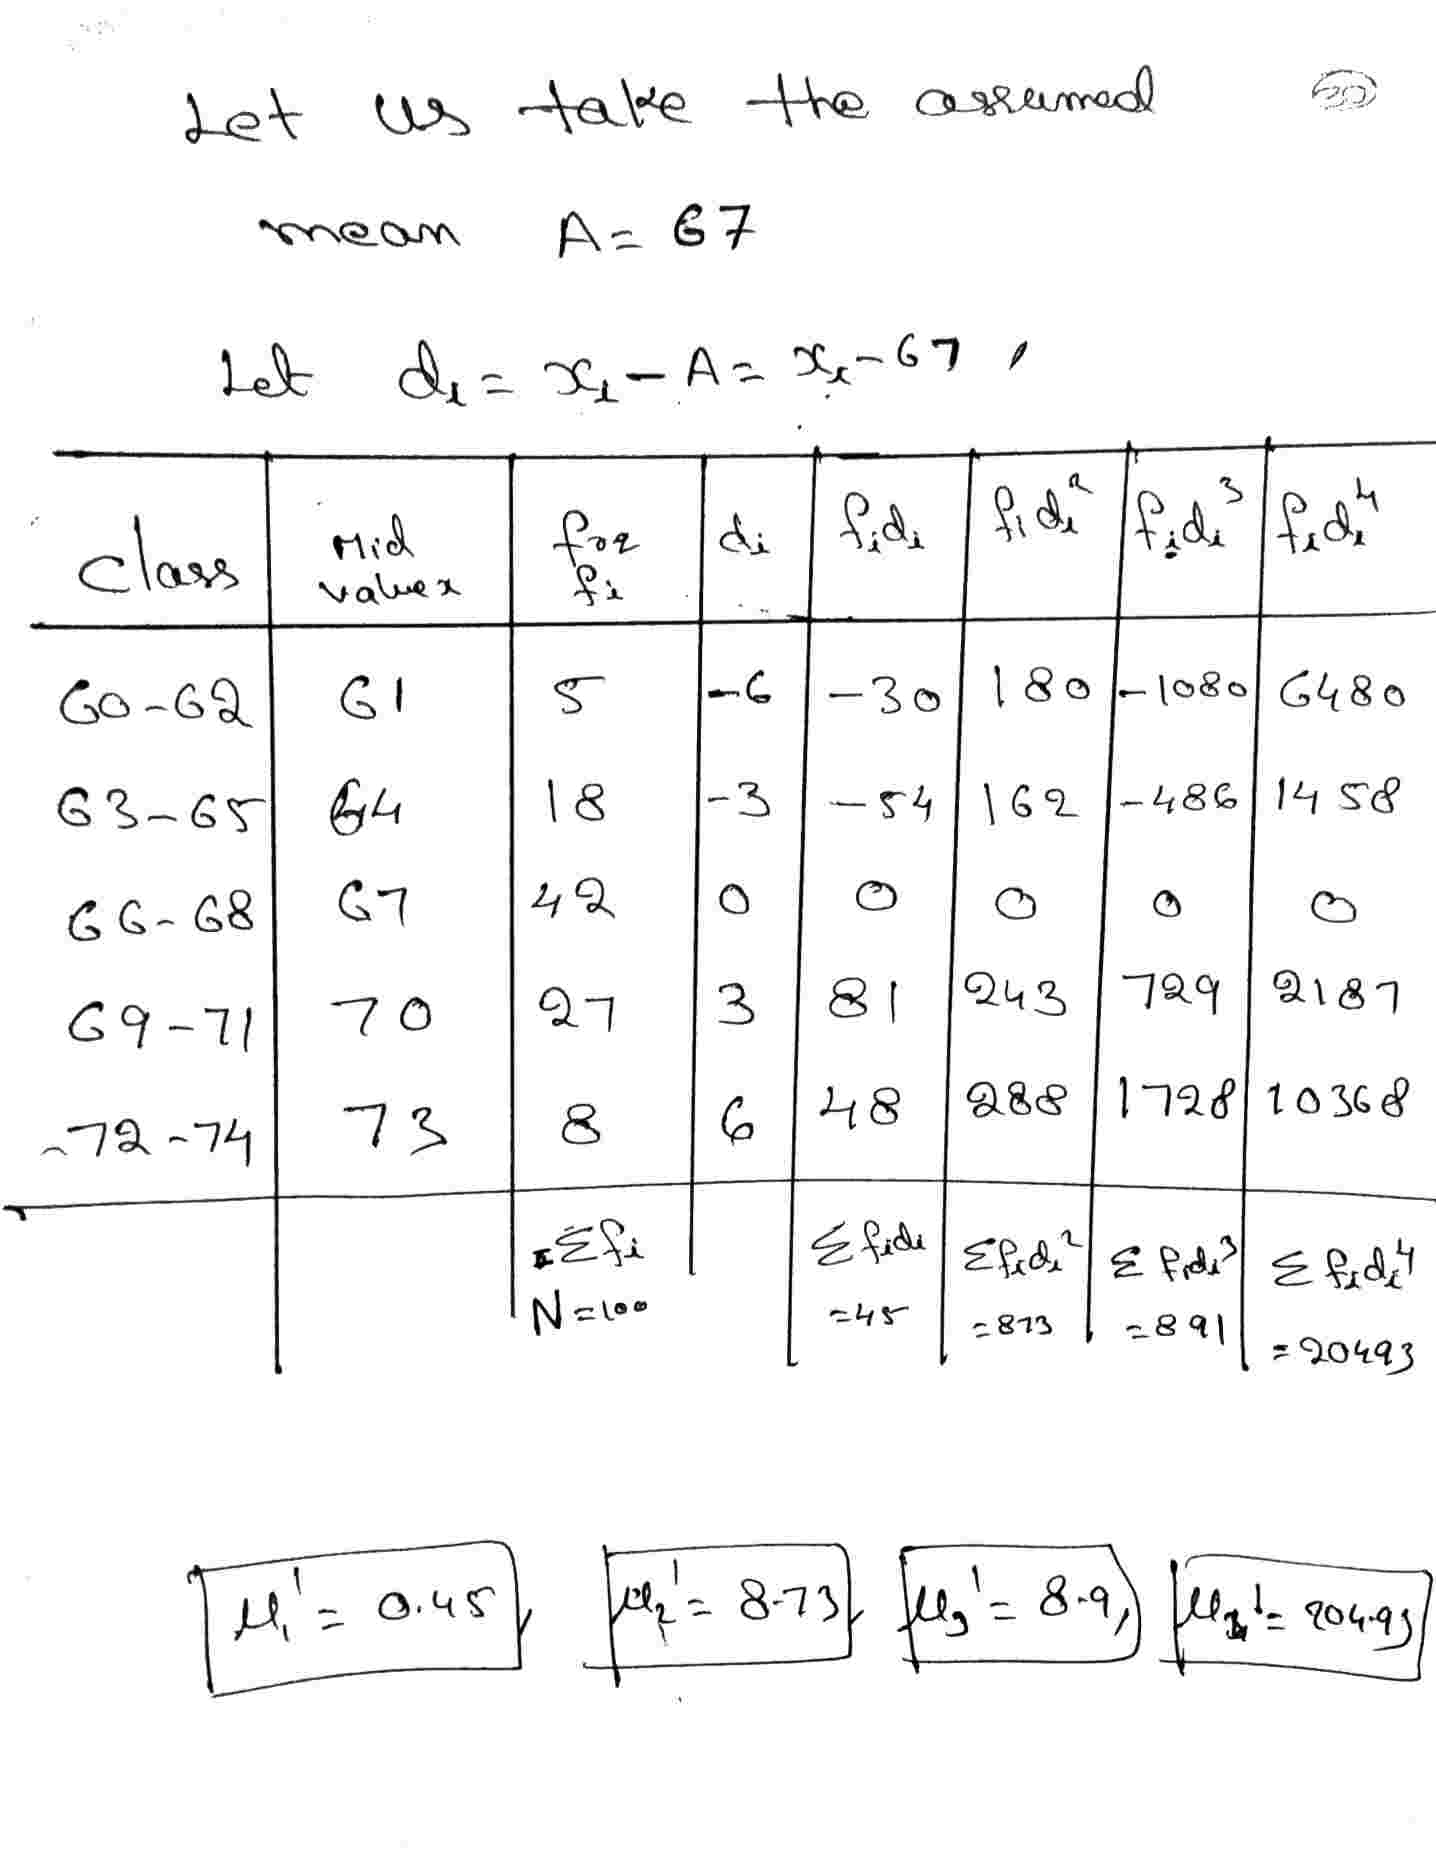 Let us take the assumed
mean A = 67
Let di = xi - A = xi - 67,
class | Mid values | freq fi | di | fidi | fidi² | fidi³ | fidi⁴
60-62 | 61 | 5 | -6 | -30 | 180 | -1080 | 6480
63-65 | 64 | 18 | -3 | -54 | 162 | -486 | 1458
66-68 | 67 | 42 | 0 | 0 | 0 | 0 | 0
69-71 | 70 | 27 | 3 | 81 | 243 | 729 | 2187
72-74 | 73 | 8 | 6 | 48 | 288 | 1728 | 10368
Σfi | Σfidi | Σfidi² | Σfidi³ | Σfidi⁴
N=100 | =45 | =873 | =891 | =20493
μ₁' = 0.45, μ₂' = 8.73, μ₃' = 8.91, μ₄' = 204.93